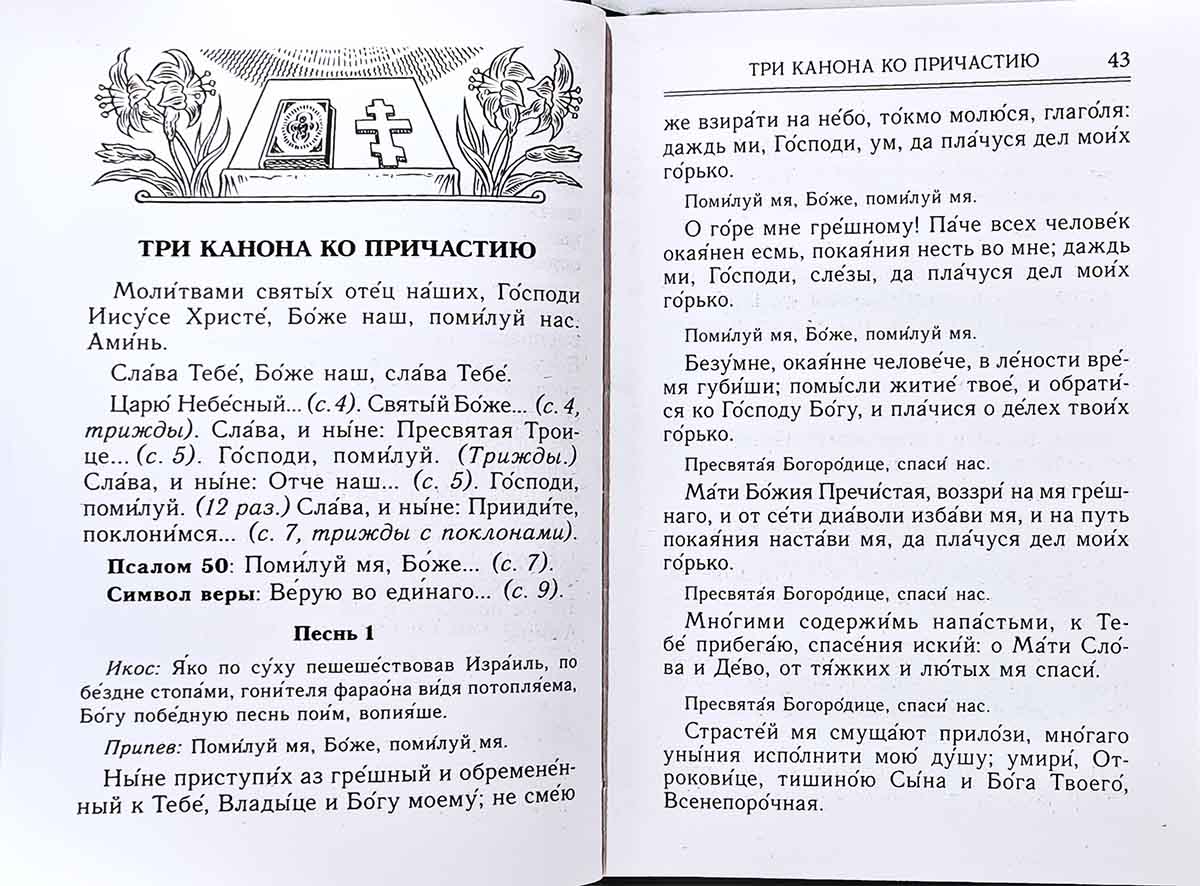 ТРИ КАНОНА КО ПРИЧАСТИЮ
Моли́твами святы́х оте́ц на́ших, Го́споди
Иису́се Христе́, Бо́же наш, поми́луй нас.
Ами́нь.
Сла́ва Тебе́, Бо́же наш, сла́ва Тебе́.
Царю́ Небе́сный... (с. 4). Святы́й Бо́же... (с. 4,
трижды). Сла́ва, и ны́не: Пресвята́я Трои-
це... (с. 5). Го́споди, поми́луй. (Трижды.)
Сла́ва, и ны́не: Отче наш... (с. 5). Го́споди,
поми́луй. (12 раз.) Сла́ва, и ны́не: Прииди́те,
поклони́мся... (с. 7, трижды с поклонами).
Псалом 50: Поми́луй мя, Бо́же... (с. 7).
Символ веры: Ве́рую во еди́наго... (с. 9).
Песнь 1
Икос: Я́ко по су́ху пешеше́ствовав Изра́иль, по
бе́здне стопа́ми, гони́теля фарао́на ви́дя потопля́ема,
Бо́гу побе́дную песнь пои́м, вопия́ше.
Припев: Поми́луй мя, Бо́же, поми́луй мя.
Ны́не приступи́х аз гре́шный и обремене́н-
ный к Тебе́, Влады́це и Бо́гу моему́; не сме́ю
ТРИ КАНОНА КО ПРИЧАСТИЮ 43
же взира́ти на не́бо, то́кмо молю́ся, глаго́ля:
даждь ми, Го́споди, ум, да пла́чуся дел мои́х
го́рько.
Поми́луй мя, Бо́же, поми́луй мя.
О го́ре мне гре́шному! Па́че всех челове́к
окая́нен есмь, покая́ния несть во мне; даждь
ми, Го́споди, сле́зы, да пла́чуся дел мои́х
го́рько.
Поми́луй мя, Бо́же, поми́луй мя.
Безу́мне, окая́нне челове́че, в ле́ности вре́-
мя губи́ши; помы́сли житие́ твое́, и обрати́-
ся ко Го́споду Бо́гу, и пла́чися о де́лех твои́х
го́рько.
Пресвята́я Богоро́дице, спаси́ нас.
Ма́ти Бо́жия Пречи́стая, воззри́ на мя гре́ш-
наго, и от се́ти диа́воли изба́ви мя, и на путь
покая́ния наста́ви мя, да пла́чуся дел мои́х
го́рько.
Пресвята́я Богоро́дице, спаси́ нас.
Мно́гими содержи́мь напа́стьми, к Те-
бе́ прибега́ю, спасе́ния иски́й: о Ма́ти Сло́-
ва и Де́во, от тя́жких и лю́тых мя спаси́.
Пресвята́я Богоро́дице, спаси́ нас.
Страсте́й мя смуща́ют прило́зи, мно́гаго
уны́ния испо́лнити мою́ ду́шу; умири́, От-
рокови́це, тишино́ю Сы́на и Бо́га Твоего́,
Всенепоро́чная.